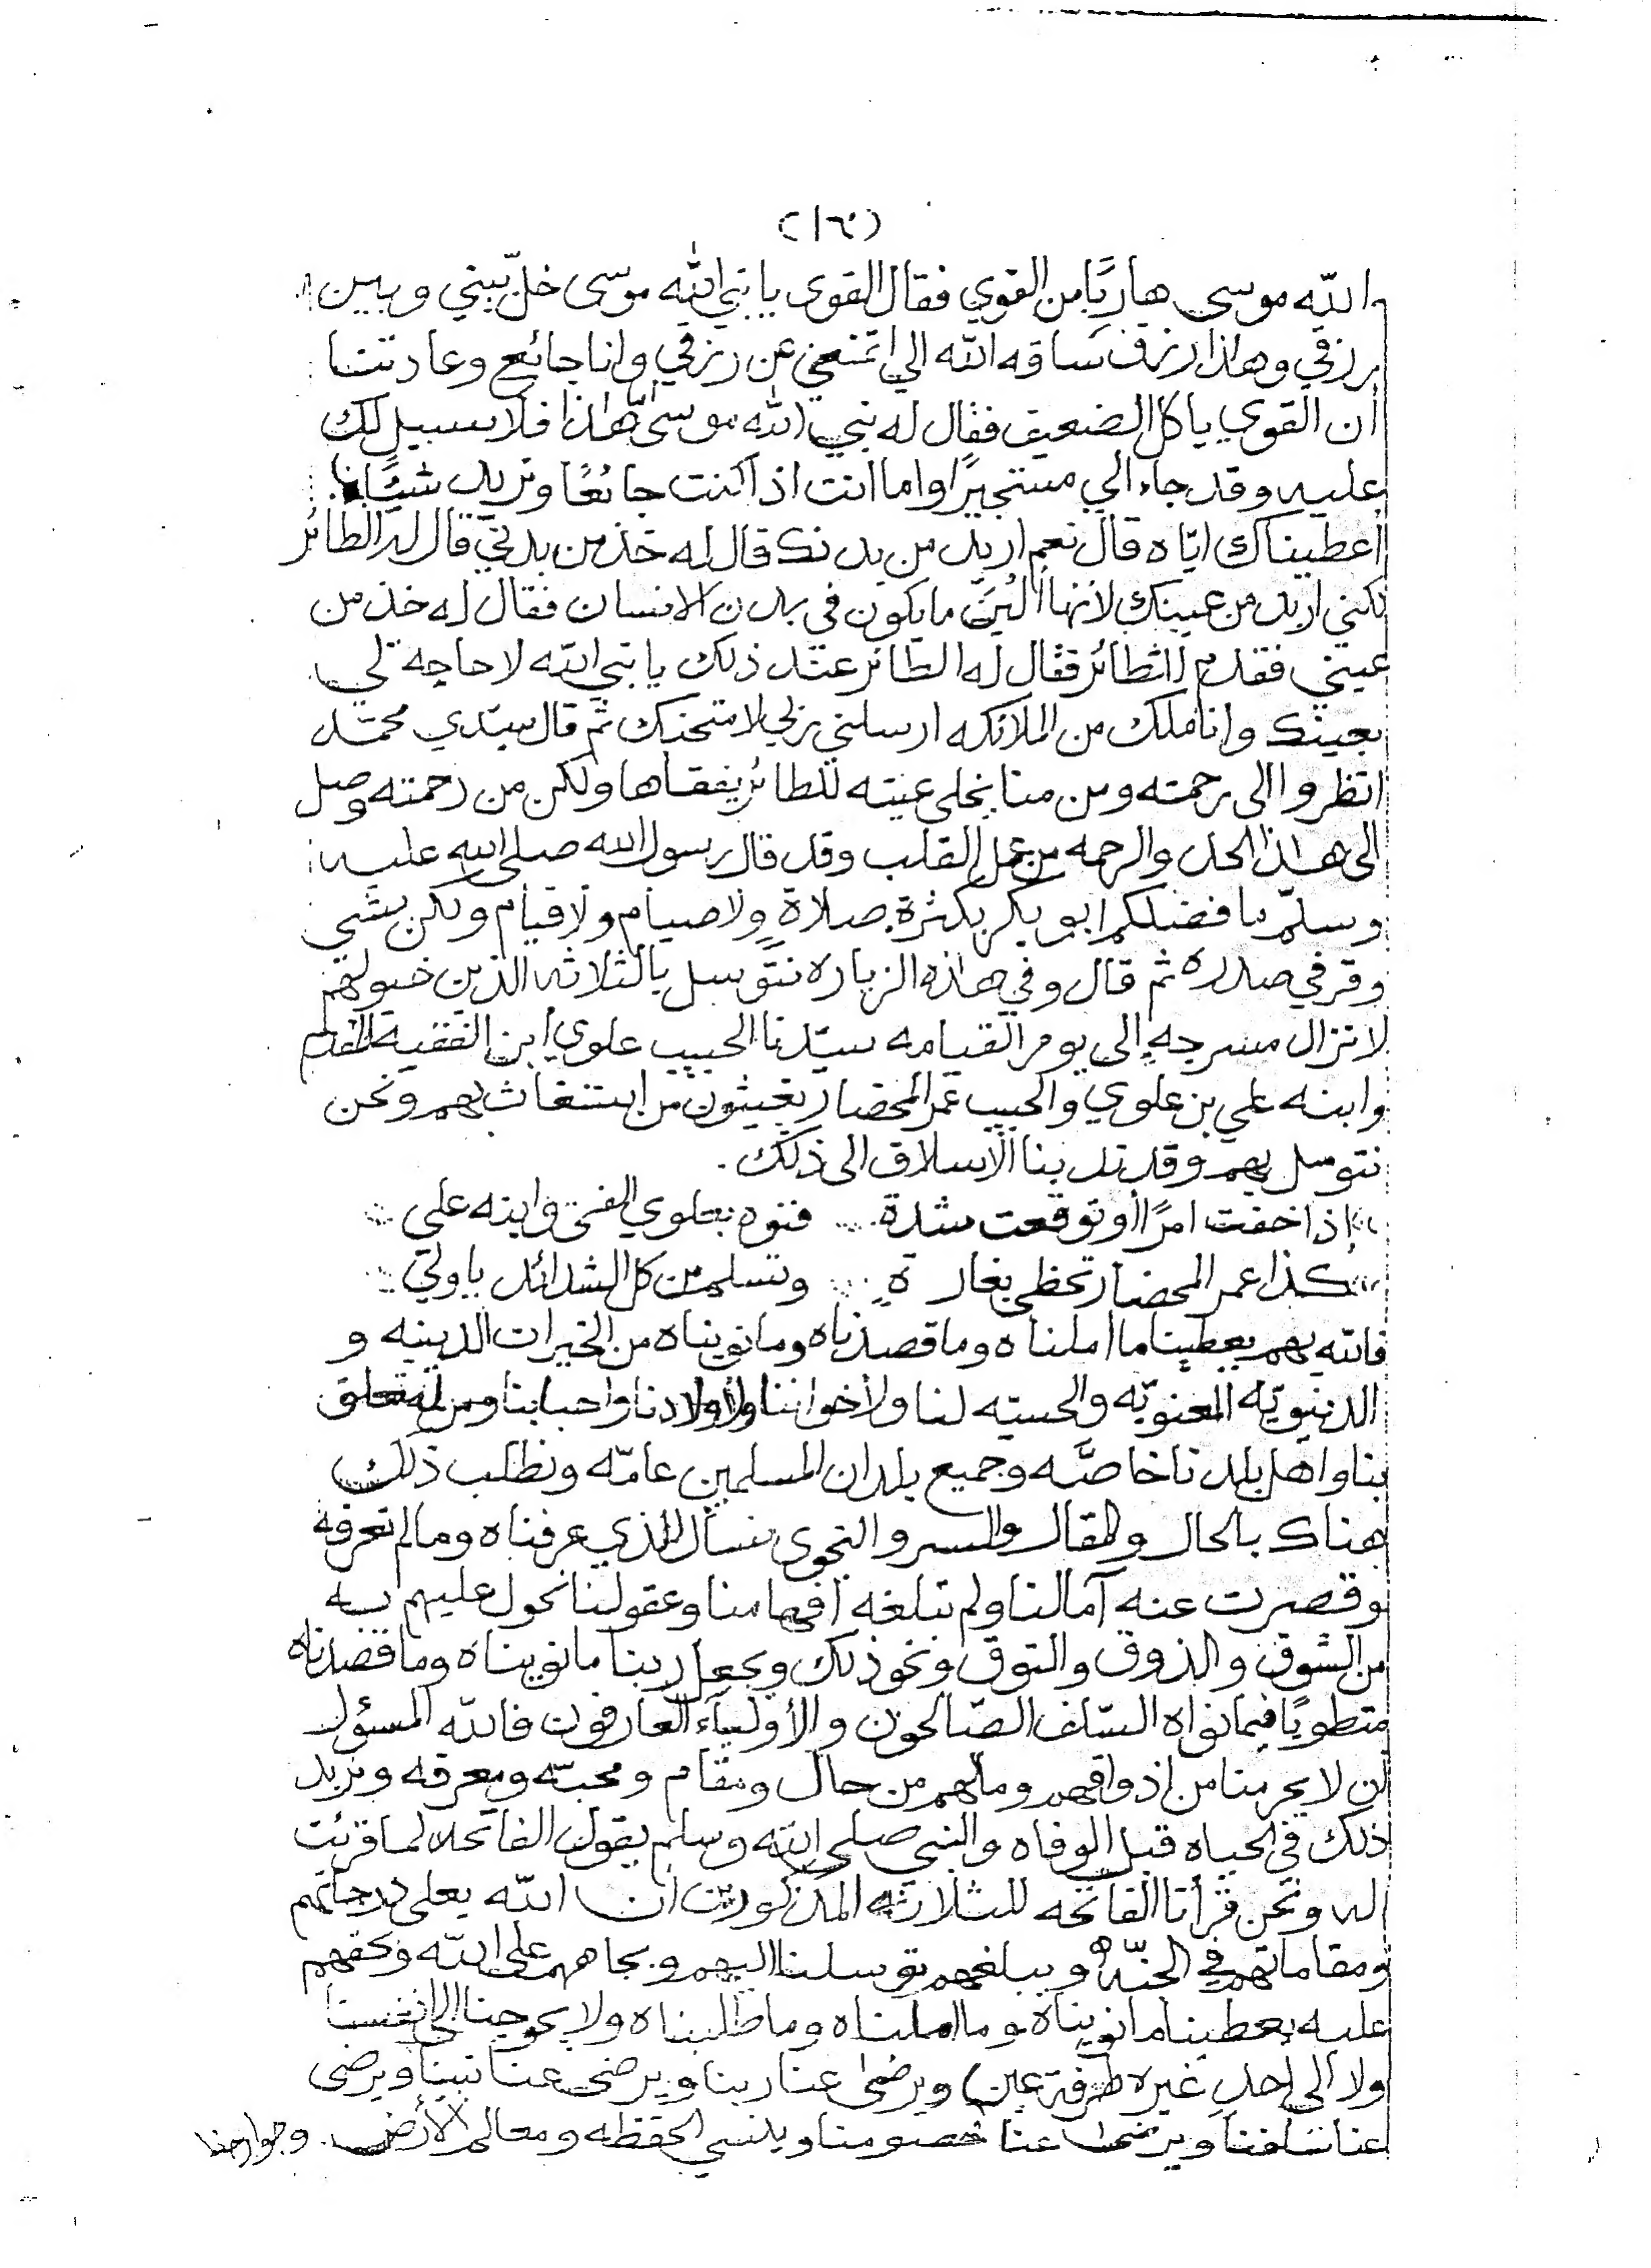 (١٦)
الله موسى هاربًا من القوي فقال القوى يا نبي الله موسى خلّ بيني وبين
رزقي وهاذا رزق ساقه الله الي اتمنعني عن رزقي وانا جائع وعادتنا
أن القوي ياكل الضعيف فقال له نبي الله موسى أمّا هاذا فلا سبيل لك
عليه وقد جاء الي مستجيرًا واما انت اذا كنت جائعًا وتريد شيئًا
أعطيناك ايّاه قال نعم اريد من بدنك قال له خذ من بدني قال له الطائر
لكني اريد من عينك لانها أليَن ما يكون في بدن الانسان فقال له خذ من
عيني فقدم للطائر فقال له الطائر عند ذلك يا نبي الله لا حاجه لي
بعينك وانا ملك من الملائكه ارسلني ربي لامتحنك ثم قال سيدي محمد
انظروا الى رحمته ومن منا يخلي عينه للطائر يفقأها ولكن من رحمته وصل
الى هذا الحد والرحمه من عمل القلب وقد قال رسول الله صلى الله عليه
وسلّم ما فضلكم ابو بكر بكثرة صلاةٍ ولا صيام ولا قيام ولكن بشي
وقر في صدره ثم قال وفي هاذه الزياره نتوسل بالثلاثه الذين خيولهم
لا تزال مسرجةٍ إلى يوم القيامه سيّدنا الحبيب علوي ابن الفقيه المقدم
وابنه علي بن علوي والحبيب عمر المحضار يغيثون من استغاث بهم ونحن
نتوسل بهم وقد ندبنا الأسلاف الى ذلك .
إذا خفت امرًا أو توقعت شدة .. فنوه بعلوي الفتى وابنه علي
كذا عمر المحضار تحظى بغارةٍ .. وتسلم من كل الشدائد يا ولي
فالله بهم يعطينا ما املناه وما قصدناه وما نويناه من الخيرات الدينيه و
الدنيويّه المعنويّه والحسيّه لنا ولأخواننا ولأولادنا واحبابنا ومن له تعلق
بنا واهل بلدنا خاصَّه وجميع بلدان المسلمين عامّه ونطلب ذلك
هناك بالحال والمقال والسر والنجوى نسأل الذي عرفناه وما لم نعرفه
وقصرت عنه آمالنا ولم تبلغه أفهامنا وعقولنا نحول عليهم به
من الشوق والذوق والتوق ونحو ذلك ويجعل ربنا ما نويناه وما قصدناه
منطويًا فيما نواه السّلف الصّالحون والأولياء العارفون فالله المسؤول
أن لا يحرمنا من إذواقهم وما لهم من حال ومقام ومحبّه ومعرفه ونريد
ذلك في الحياه قبل الوفاه والنبي صلى الله وسلم يقول الفاتحه لما قرئت
له ونحن قرأنا الفاتحه للثلاثه المذكورين أن الله يعلى درجاتهم
ومقاماتهم في الجنّه ويبلغهم توسلنا اليهم وبجاههم على الله وحقهم
عليه يعطينا ما نويناه وما املناه وما طلبناه ولا يحوجنا الى انفسنا
ولا الى إحدٍ غيره طرفة عين) ويرضى عنا ربنا ويرضى عنا نبينا ويرضى
عنا سلفنا ويرضى عنا خصومنا وينسي الحفظه ومعالم الأرض وجوارحنا